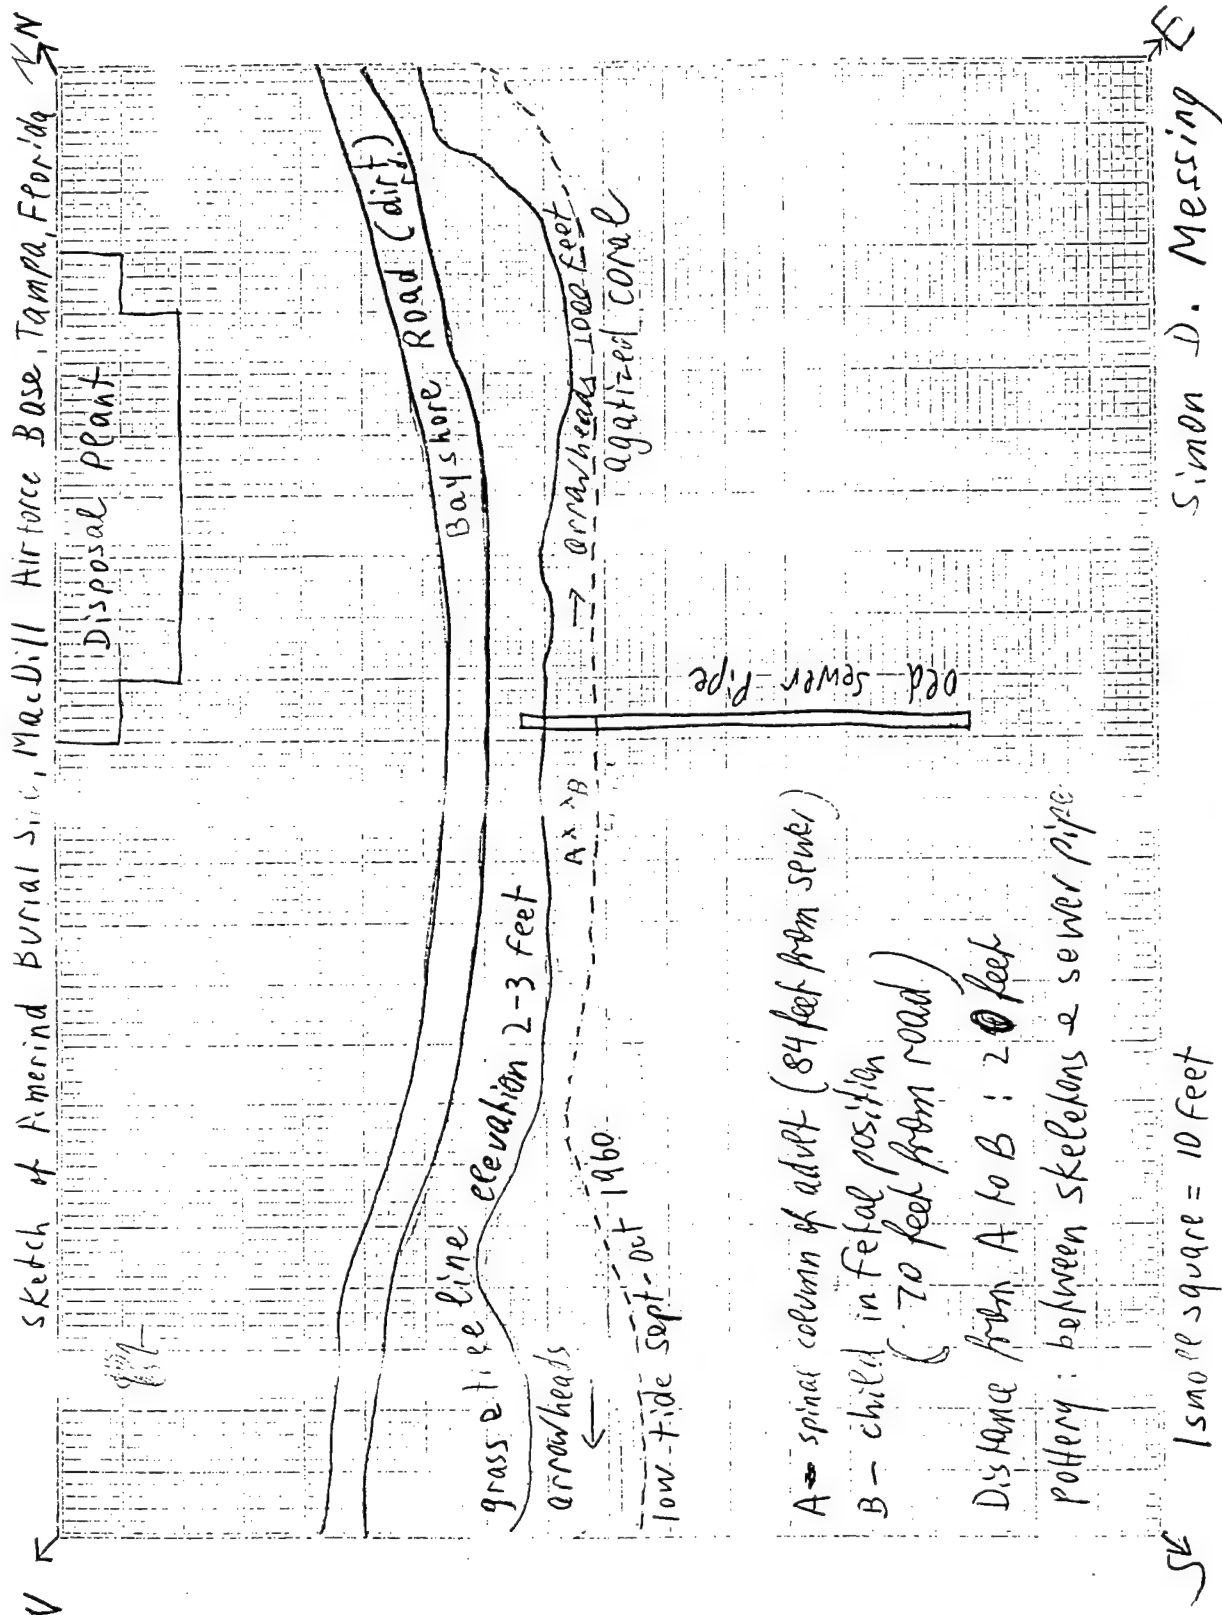 N
Sketch of Amerind Burial Site, MacDill Airforce Base, Tampa, Florida
W
Disposal Plant
Bayshore Road (dirt)
grass & tree line elevation 2-3 feet
A x x B
→ arrowheads 1000 feet
agatized coral
arrowheads
←
low tide sept-oct 1960
old sewer pipe
A - spinal column of adult (84 feet from sewer)
B - child in fetal position
(70 feet from road)
Distance from A to B: 20 feet
Pottery: between skeletons & sewer pipe
S
1 small square = 10 feet
Simon D. Messing
E